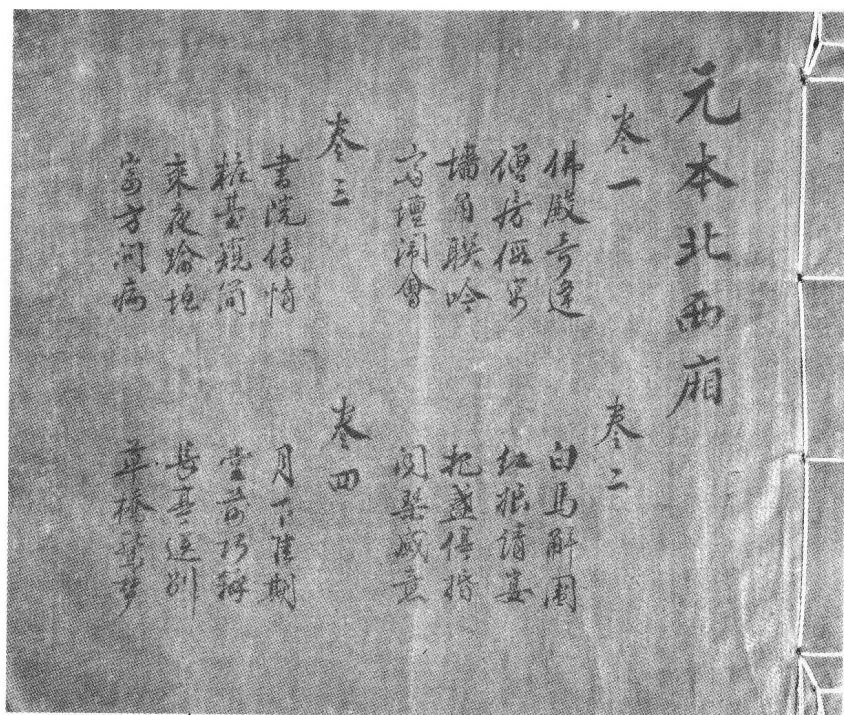 元本北西廂
卷一
佛殿奇逢
僧房假寓
墻角聯吟
齋壇鬧會
卷二
白馬解圍
紅娘請宴
把盞停婚
閱琴感意
卷三
書院傳情
粧臺窺簡
乘夜踰垣
寄方問病
卷四
月下佳期
堂前巧辯
長亭送別
草橋驚夢